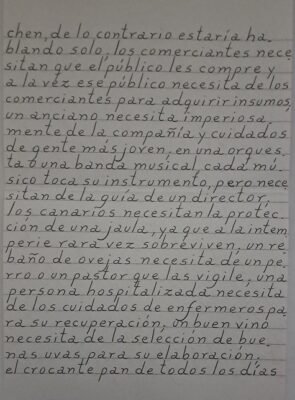 chen, de lo contrario estaría ha-
blando solo, los comerciantes nece-
sitan que el público les compre y
a la vez ese público necesita de los
comerciantes para adquirir insumos,
un anciano necesita imperiosa-
mente de la compañía y cuidados
de gente más joven, en una orques-
ta o una banda musical, cada mú-
sico toca su instrumento, pero nece-
sitan de la guía de un director,
los canarios necesitan la protec-
ción de una jaula, ya que a la intem-
perie rara vez sobreviven, un re-
baño de ovejas necesita de un pe-
rro o un pastor que las vigile, una
persona hospitalizada necesita
de los cuidados de enfermeros pa-
ra su recuperación, un buen vino
necesita de la selección de bue-
nas uvas para su elaboración,
el crocante pan de todos los días